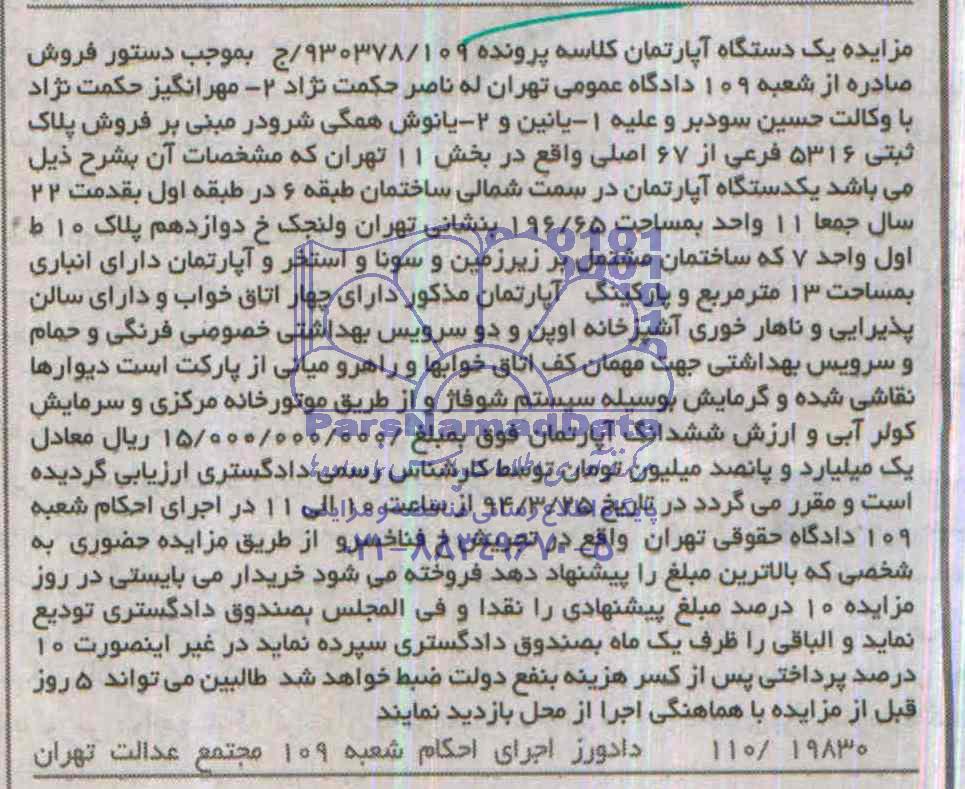 مزایده یک دستگاه آپارتمان کلاسه پرونده ۹۳۰۳۷۸/۱۰۹/ج بموجب دستور فروش
صادره از شعبه ۱۰۹ دادگاه عمومی تهران له ناصر حکمت نژاد ۲- مهرانگیز حکمت نژاد
با وکالت حسین سودبر و علیه ۱-یانین و ۲-یانوش همگی شرودر مبنی بر فروش پلاک
ثبتی ۵۳۱۶ فرعی از ۶۷ اصلی واقع در بخش ۱۱ تهران که مشخصات آن بشرح ذیل
می باشد یکدستگاه آپارتمان در سمت شمالی ساختمان طبقه ۶ در طبقه اول بقدمت ۲۲
سال جمعا ۱۱ واحد بمساحت ۱۹۶/۶۵ بنشانی تهران ولنجک خ دوازدهم پلاک ۱۰ ط
اول واحد ۷ که ساختمان مشتمل بر زیرزمین و سونا و استخر و آپارتمان دارای انباری
بمساحت ۱۳ مترمربع و پارکینگ آپارتمان مذکور دارای چهار اتاق خواب و دارای سالن
پذیرایی و ناهار خوری آشپزخانه اوپن و دو سرویس بهداشتی خصوصی فرنگی و حمام
و سرویس بهداشتی جهت مهمان کف اتاق خوابها و راهرو میانی از پارکت است دیوارها
نقاشی شده و گرمایش بوسیله سیستم شوفاژ و از طریق موتورخانه مرکزی و سرمایش
ParsNamadData
کولر آبی و ارزش ششدانگ آپارتمان فوق بمبلغ ۱۵/۰۰۰/۰۰۰/۰۰۰/ ریال معادل
یک میلیارد و پانصد میلیون تومان توسط کارشناس رسمی دادگستری ارزیابی گردیده
است و مقرر می گردد در تاریخ ۹۴/۳/۲۵ از ساعت ۱۰ الی ۱۱ در اجرای احکام شعبه
۱۰۹ دادگاه حقوقی تهران واقع در تجریش خ فناخسرو از طریق مزایده حضوری به
۰۲۱-۸۸۳۴۹۶۷۰-۵
شخصی که بالاترین مبلغ را پیشنهاد دهد فروخته می شود خریدار می بایستی در روز
مزایده ۱۰ درصد مبلغ پیشنهادی را نقدا و فی المجلس بصندوق دادگستری تودیع
نماید و الباقی را ظرف یک ماه بصندوق دادگستری سپرده نماید در غیر اینصورت ۱۰
درصد پرداختی پس از کسر هزینه بنفع دولت ضبط خواهد شد طالبین می تواند ۵ روز
قبل از مزایده با هماهنگی اجرا از محل بازدید نمایند
۱۱۰/ ۱۹۸۳۰ دادورز اجرای احکام شعبه ۱۰۹ مجتمع عدالت تهران